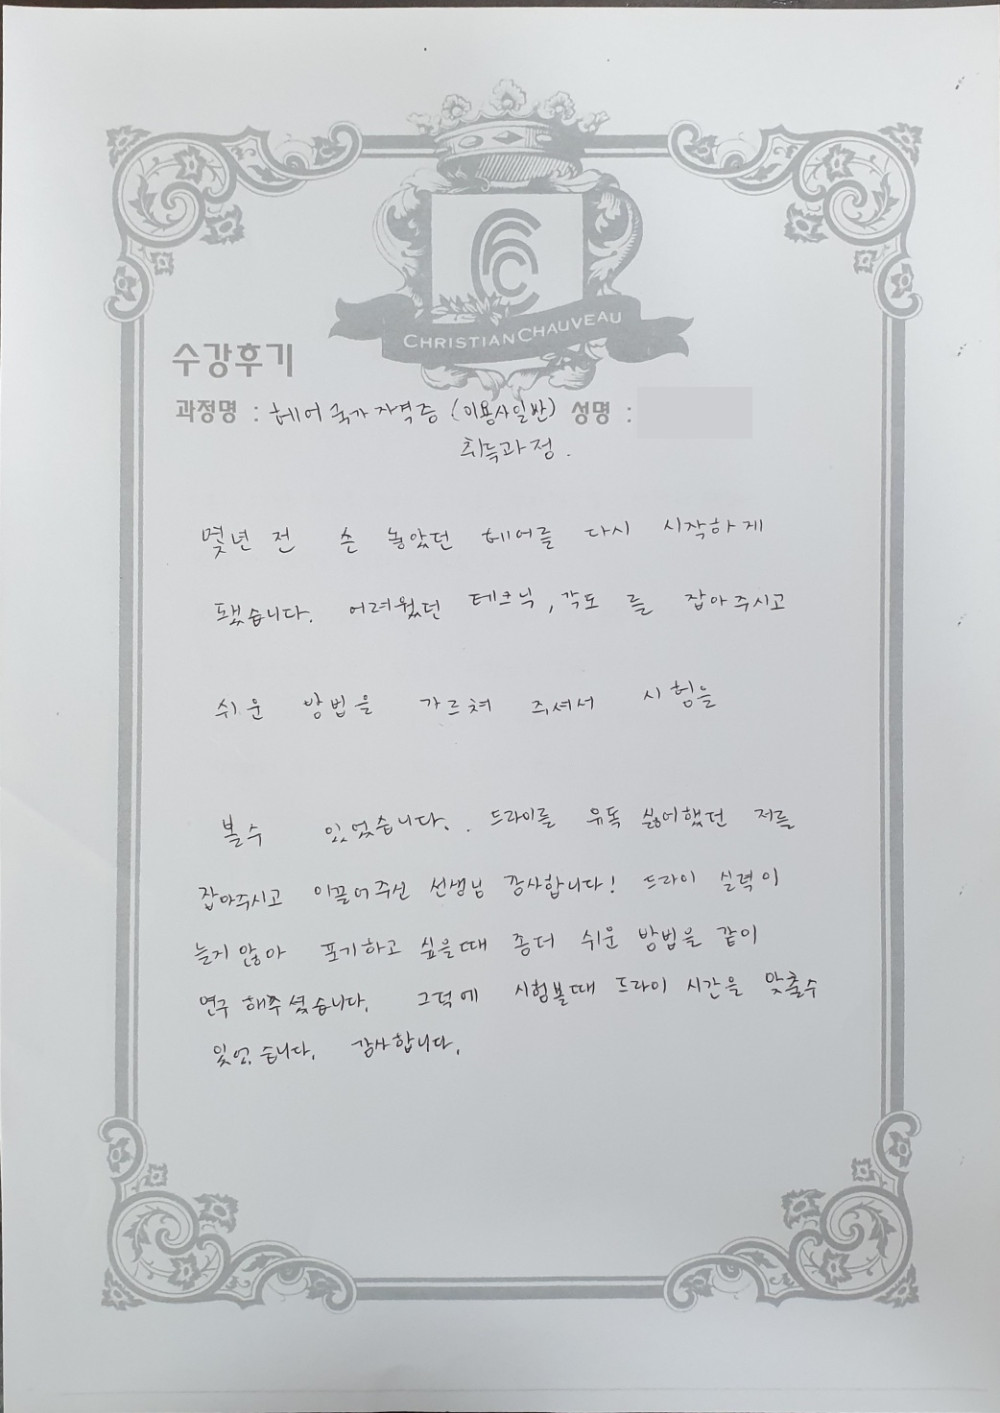 CHRISTIAN CHAUVEAU
수강후기
과정명 : 헤어 국가 자격증 (미용사일반) 성명 :
취득과정.
몇년 전 손 놓았던 헤어를 다시 시작하게
됐습니다. 어려웠던 테크닉, 각도 를 잡아주시고
쉬운 방법을 가르쳐 주셔서 시험을
볼수 있었습니다.. 드라이를 유독 싫어했던 저를
잡아주시고 이끌어주신 선생님 감사합니다! 드라이 실력이
늘지 않아 포기하고 싶을때 좀더 쉬운 방법을 같이
연구 해주셨습니다. 그덕에 시험볼때 드라이 시간을 맞출수
있었습니다. 감사합니다.